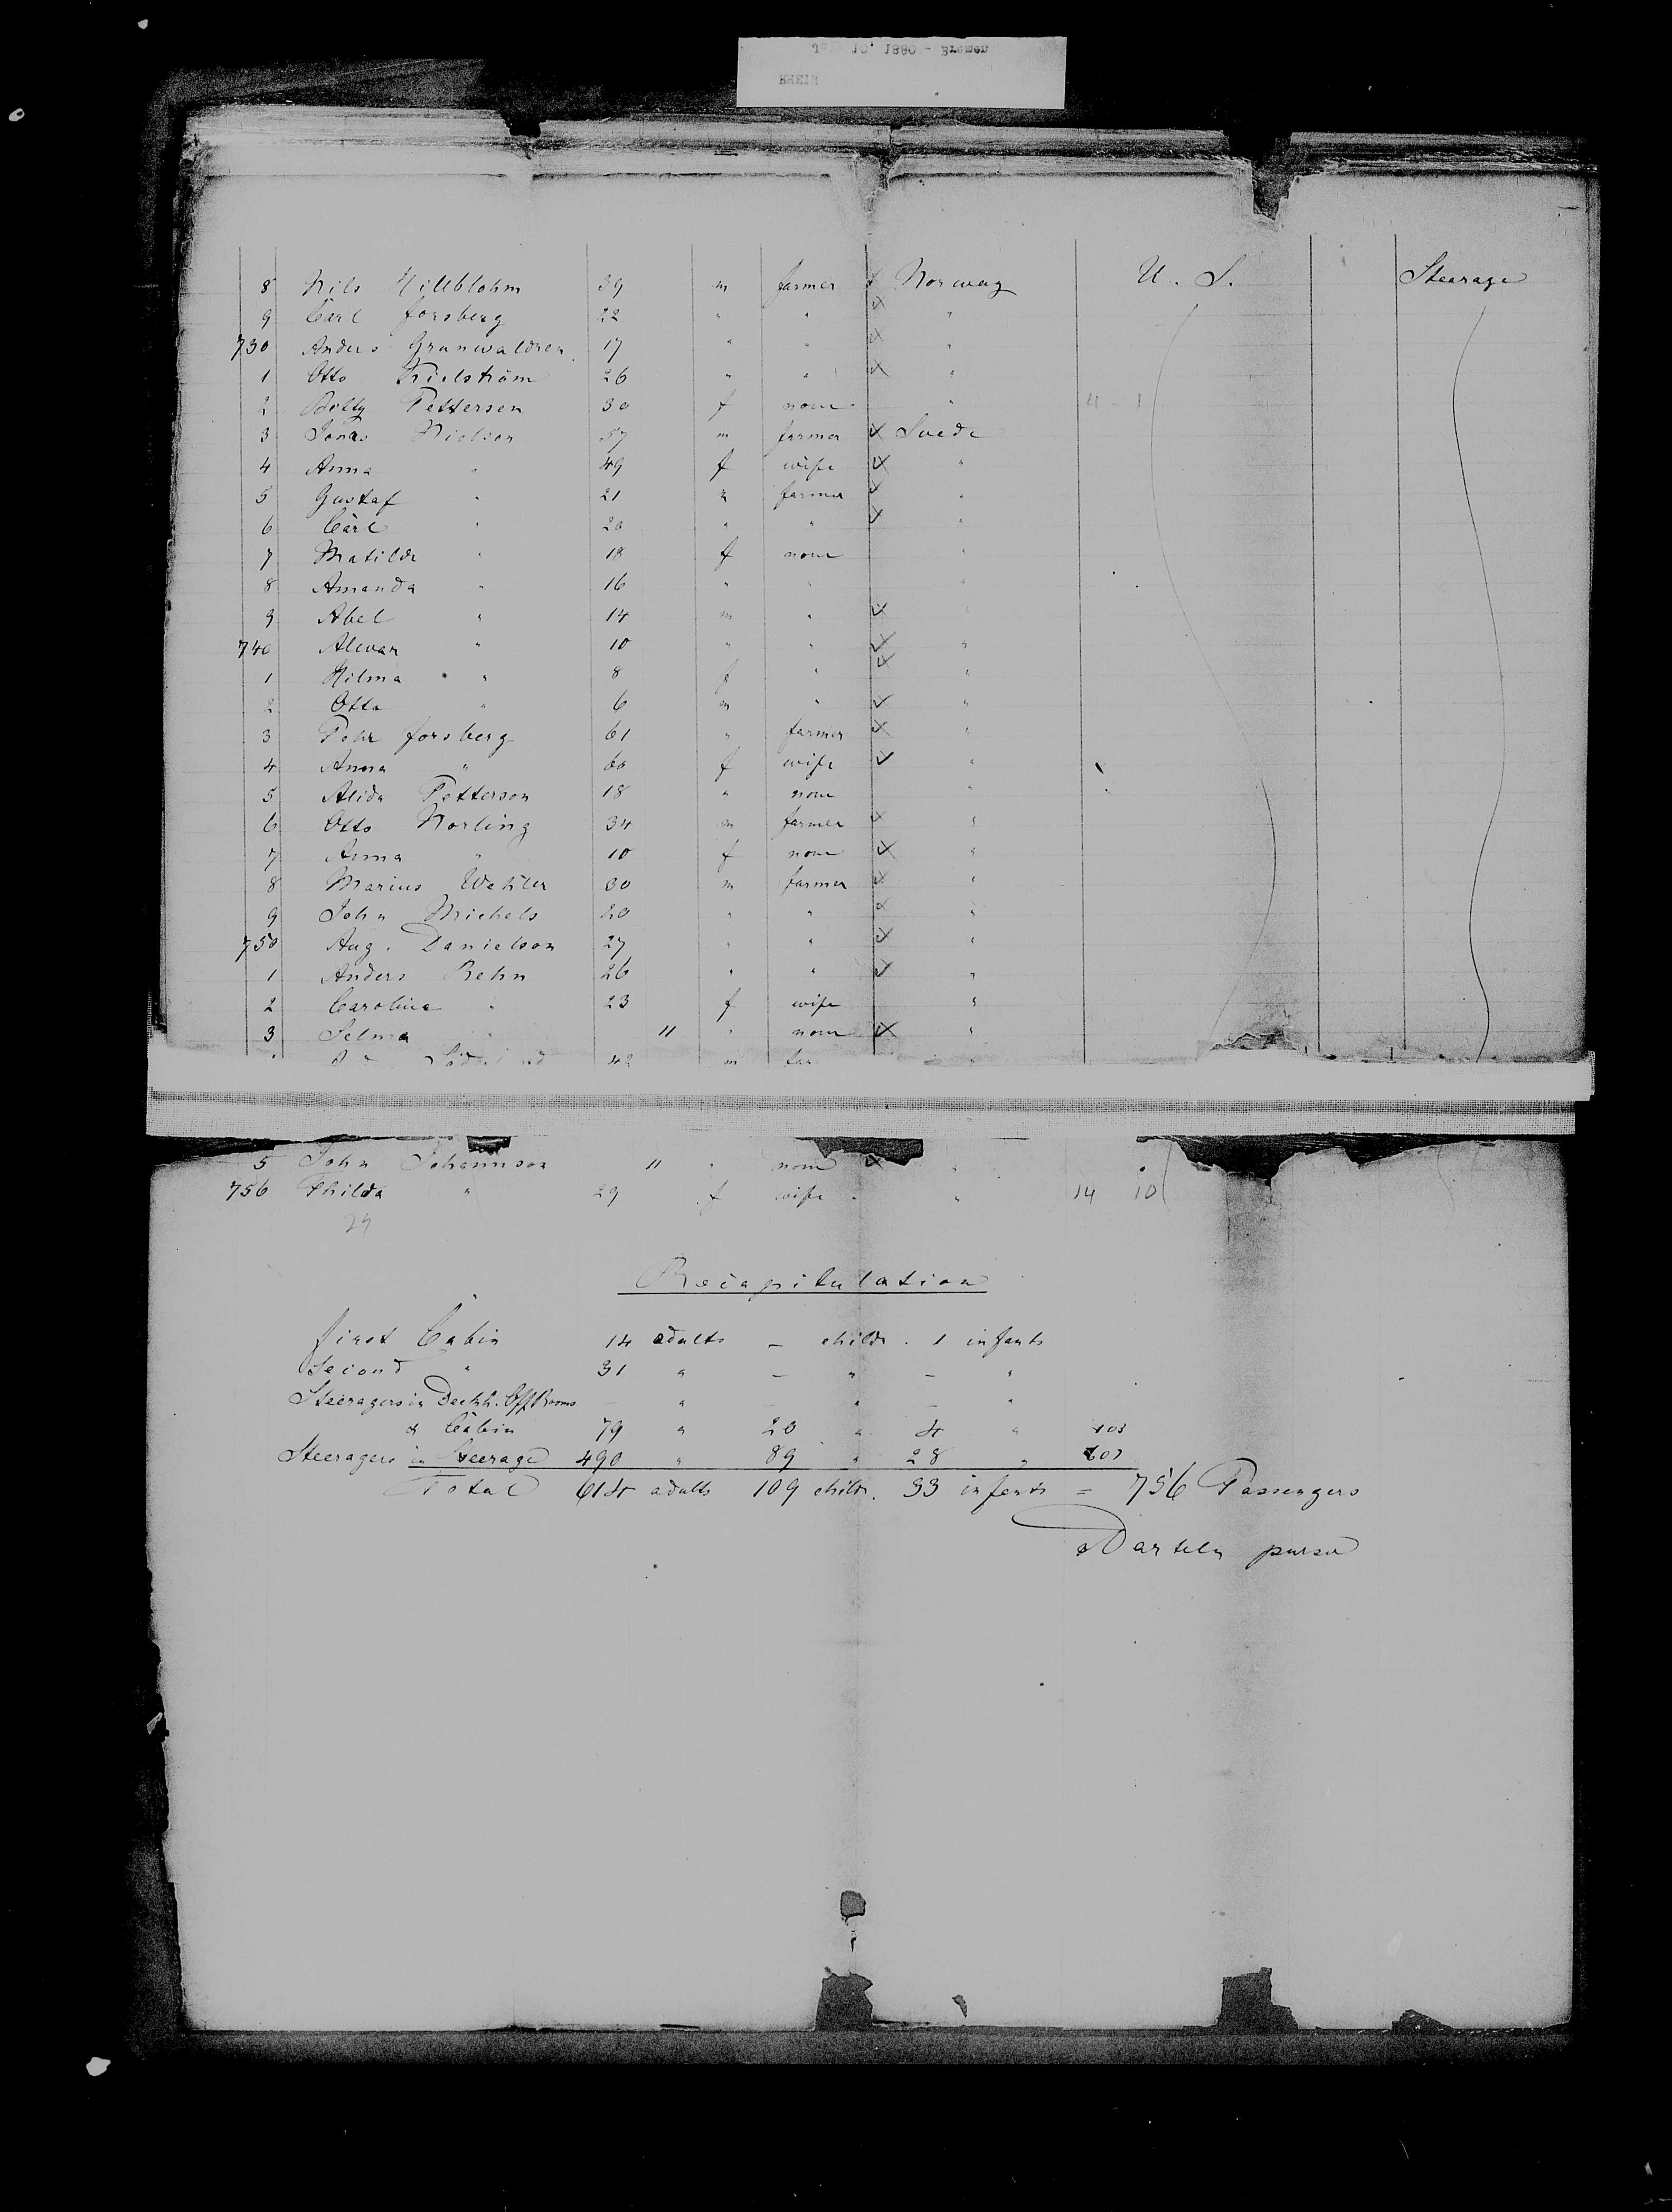 10 1880 - Bremen
RHEIN
8 Nils Hillblohm 39 m farmer Norway U. S. Steerage
9 Carl Forsberg 22 " " "
730 Anders Grunwaldsen 17 " " "
1 Otto Thielström 26 " " "
2 Betty Pettersen 30 f none "
3 Jonas Nielson 57 m farmer Suede
4 Anna " 49 f wife "
5 Gustaf " 21 farmer "
6 Carl " 20 " " "
7 Matilde " 18 f none "
8 Amanda " 16 " " "
9 Abel " 14 m " "
740 Alwar " 10 " " "
1 Hilma " 8 f " "
2 Otto " 6 m " "
3 Pehr Forsberg 61 " farmer "
4 Anna " 60 f wife "
5 Alida Petterson 18 " none "
6 Otto Norling 34 m farmer "
7 Anna " 10 f none "
8 Marius Wehler 30 m farmer "
9 John Michels 20 " " "
750 Aug. Danielson 27 " " "
1 Anders Behn 26 " " "
2 Carolina " 23 f wife "
3 Selma " 11 " none "
42 m far
5 John Johannson 11 " none "
756 Thilda " 29 f wife " 14 10
29
Recapitulation
First Cabin 14 adults - childr. 1 infants
Second " 31 " - " - "
Steeragers in Deckh. Off Rooms - " - " - "
& Cabin 79 " 20 " 4 " 103
Steeragers in Steerage 490 " 89 " 28 " 607
Total 614 adults 109 childr. 33 infants = 756 Passengers
purser